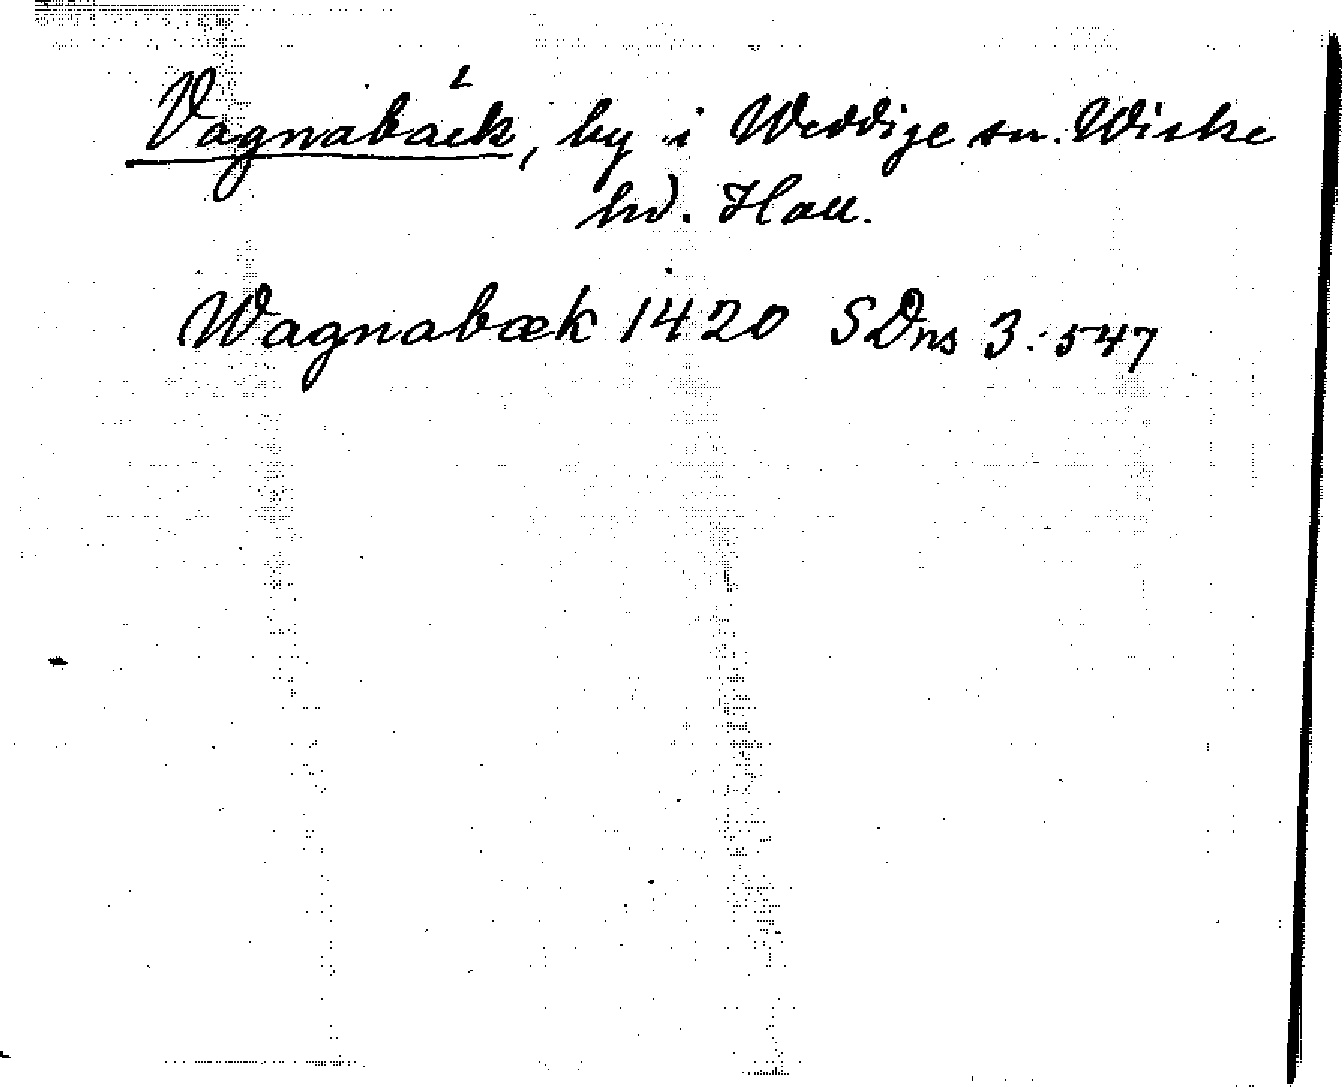 Vagnabäck, by i Weddige sn. Wiske
hd. Hall.
Wagnabæk 1420 SDns 3:547